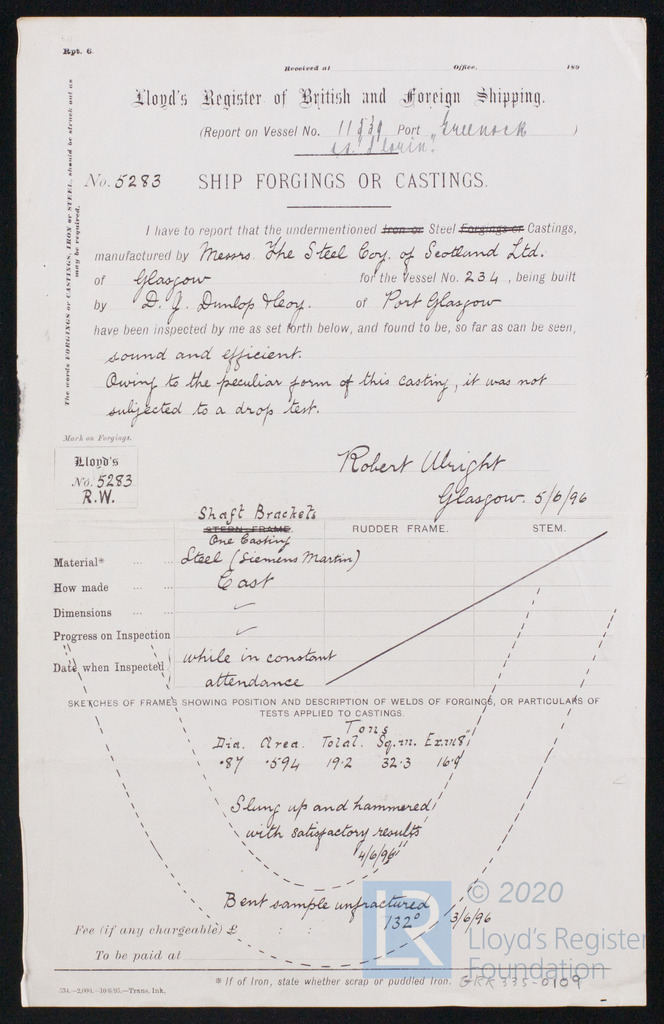 Rpt. 6.
Received at Office, 189
Lloyd's Register of British and Foreign Shipping.
(Report on Vessel No. 11539 Port Greenock )
No. 5283 SHIP FORGINGS OR CASTINGS.
The words FORGINGS or CASTINGS, IRON or STEEL, should be struck out as may be required.
I have to report that the undermentioned Iron or Steel Forgings or Castings,
manufactured by Messrs The Steel Coy. of Scotland Ltd.
of Glasgow for the Vessel No. 234, being built
by D. J. Dunlop & Coy. of Port Glasgow
have been inspected by me as set forth below, and found to be, so far as can be seen,
sound and efficient.
Owing to the peculiar form of this casting, it was not
subjected to a drop test.
Mark on Forgings.
Lloyd's
No. 5283
R.W.
Robert Wright
Glasgow. 5/6/96
Shaft Brackets
STERN FRAME. RUDDER FRAME. STEM.
One Casting
Material* Steel (Siemens Martin)
How made Cast
Dimensions ✓
Progress on Inspection ✓
Date when Inspected while in constant
attendance
SKETCHES OF FRAMES SHOWING POSITION AND DESCRIPTION OF WELDS OF FORGINGS, OR PARTICULARS OF
TESTS APPLIED TO CASTINGS.
Tons
Dia. Area. Total. Sq.in. Ex.in 8"
.87 .594 19.2 32.3
Slung up and hammered
with satisfactory results
4/6/96
Bent sample unfractured
132° 3/6/96
Fee (if any chargeable) £ : :
To be paid at
* If of Iron, state whether scrap or puddled Iron. GRK 335-0109
534.—2,000.—10/6/95.—Trans. Ink.
LR
© 2020
Lloyd's Register
Foundation